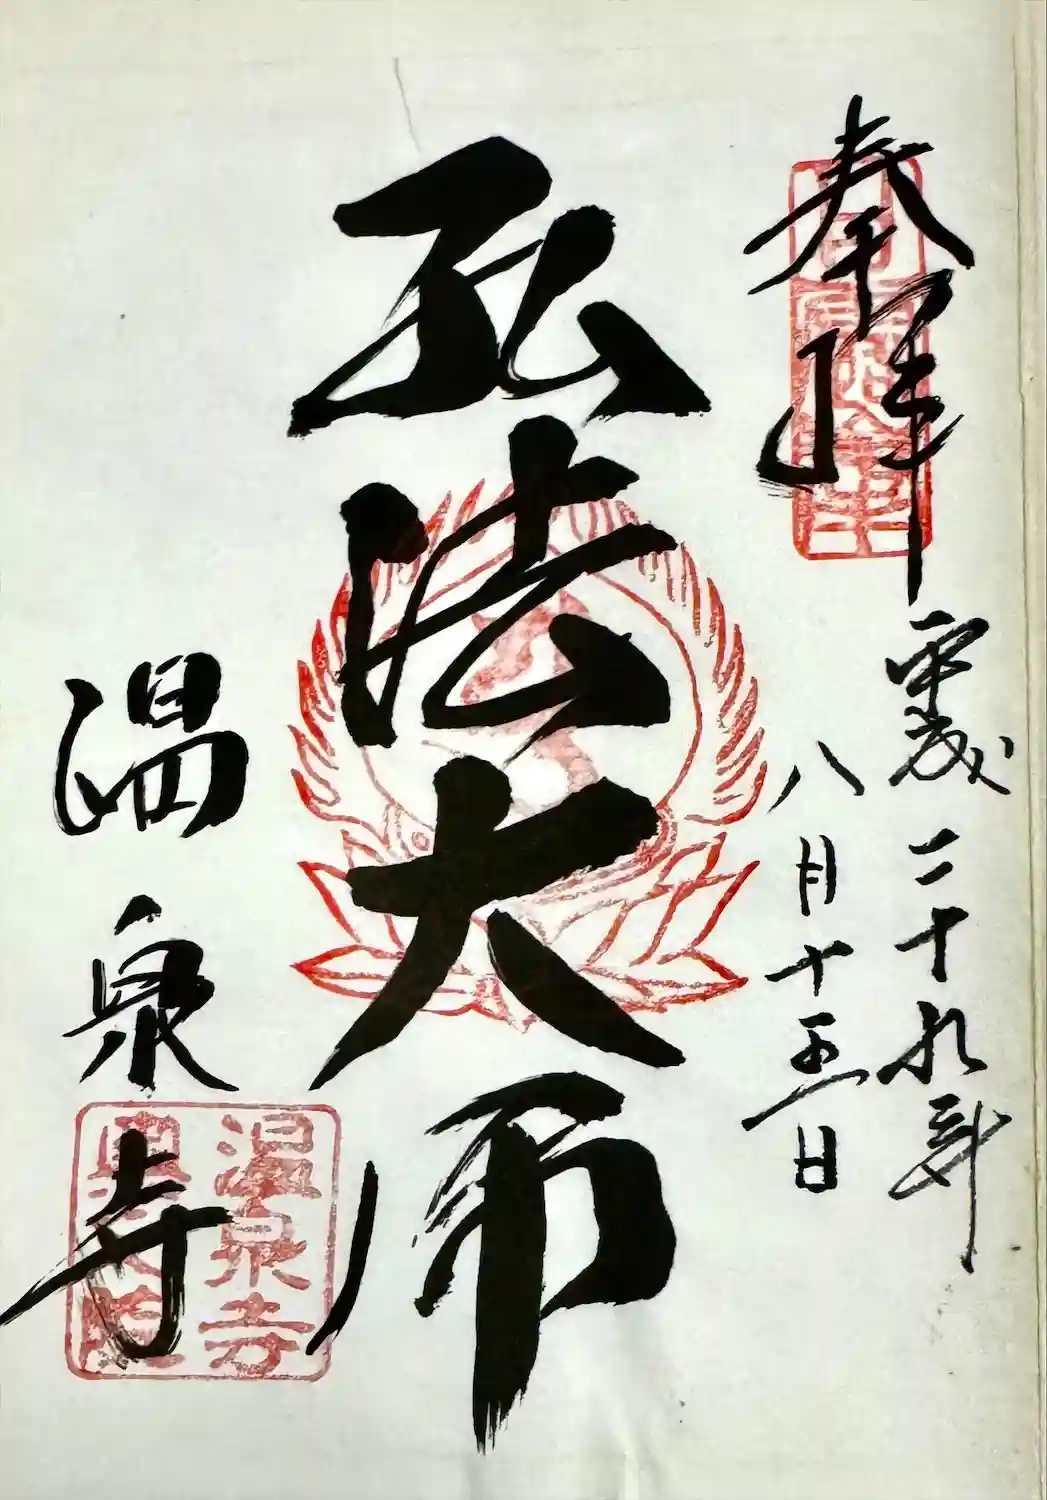 奉拝
平成二十九年
八月十五日
弘法大師
温泉寺
温泉寺
奥之院